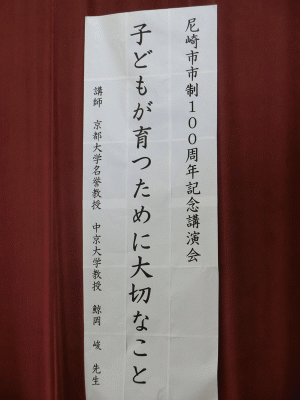 尼崎市市制100周年記念講演会
子どもが育つために大切なこと
講師 京都大学名誉教授 中京大学教授 鯨岡 峻 先生